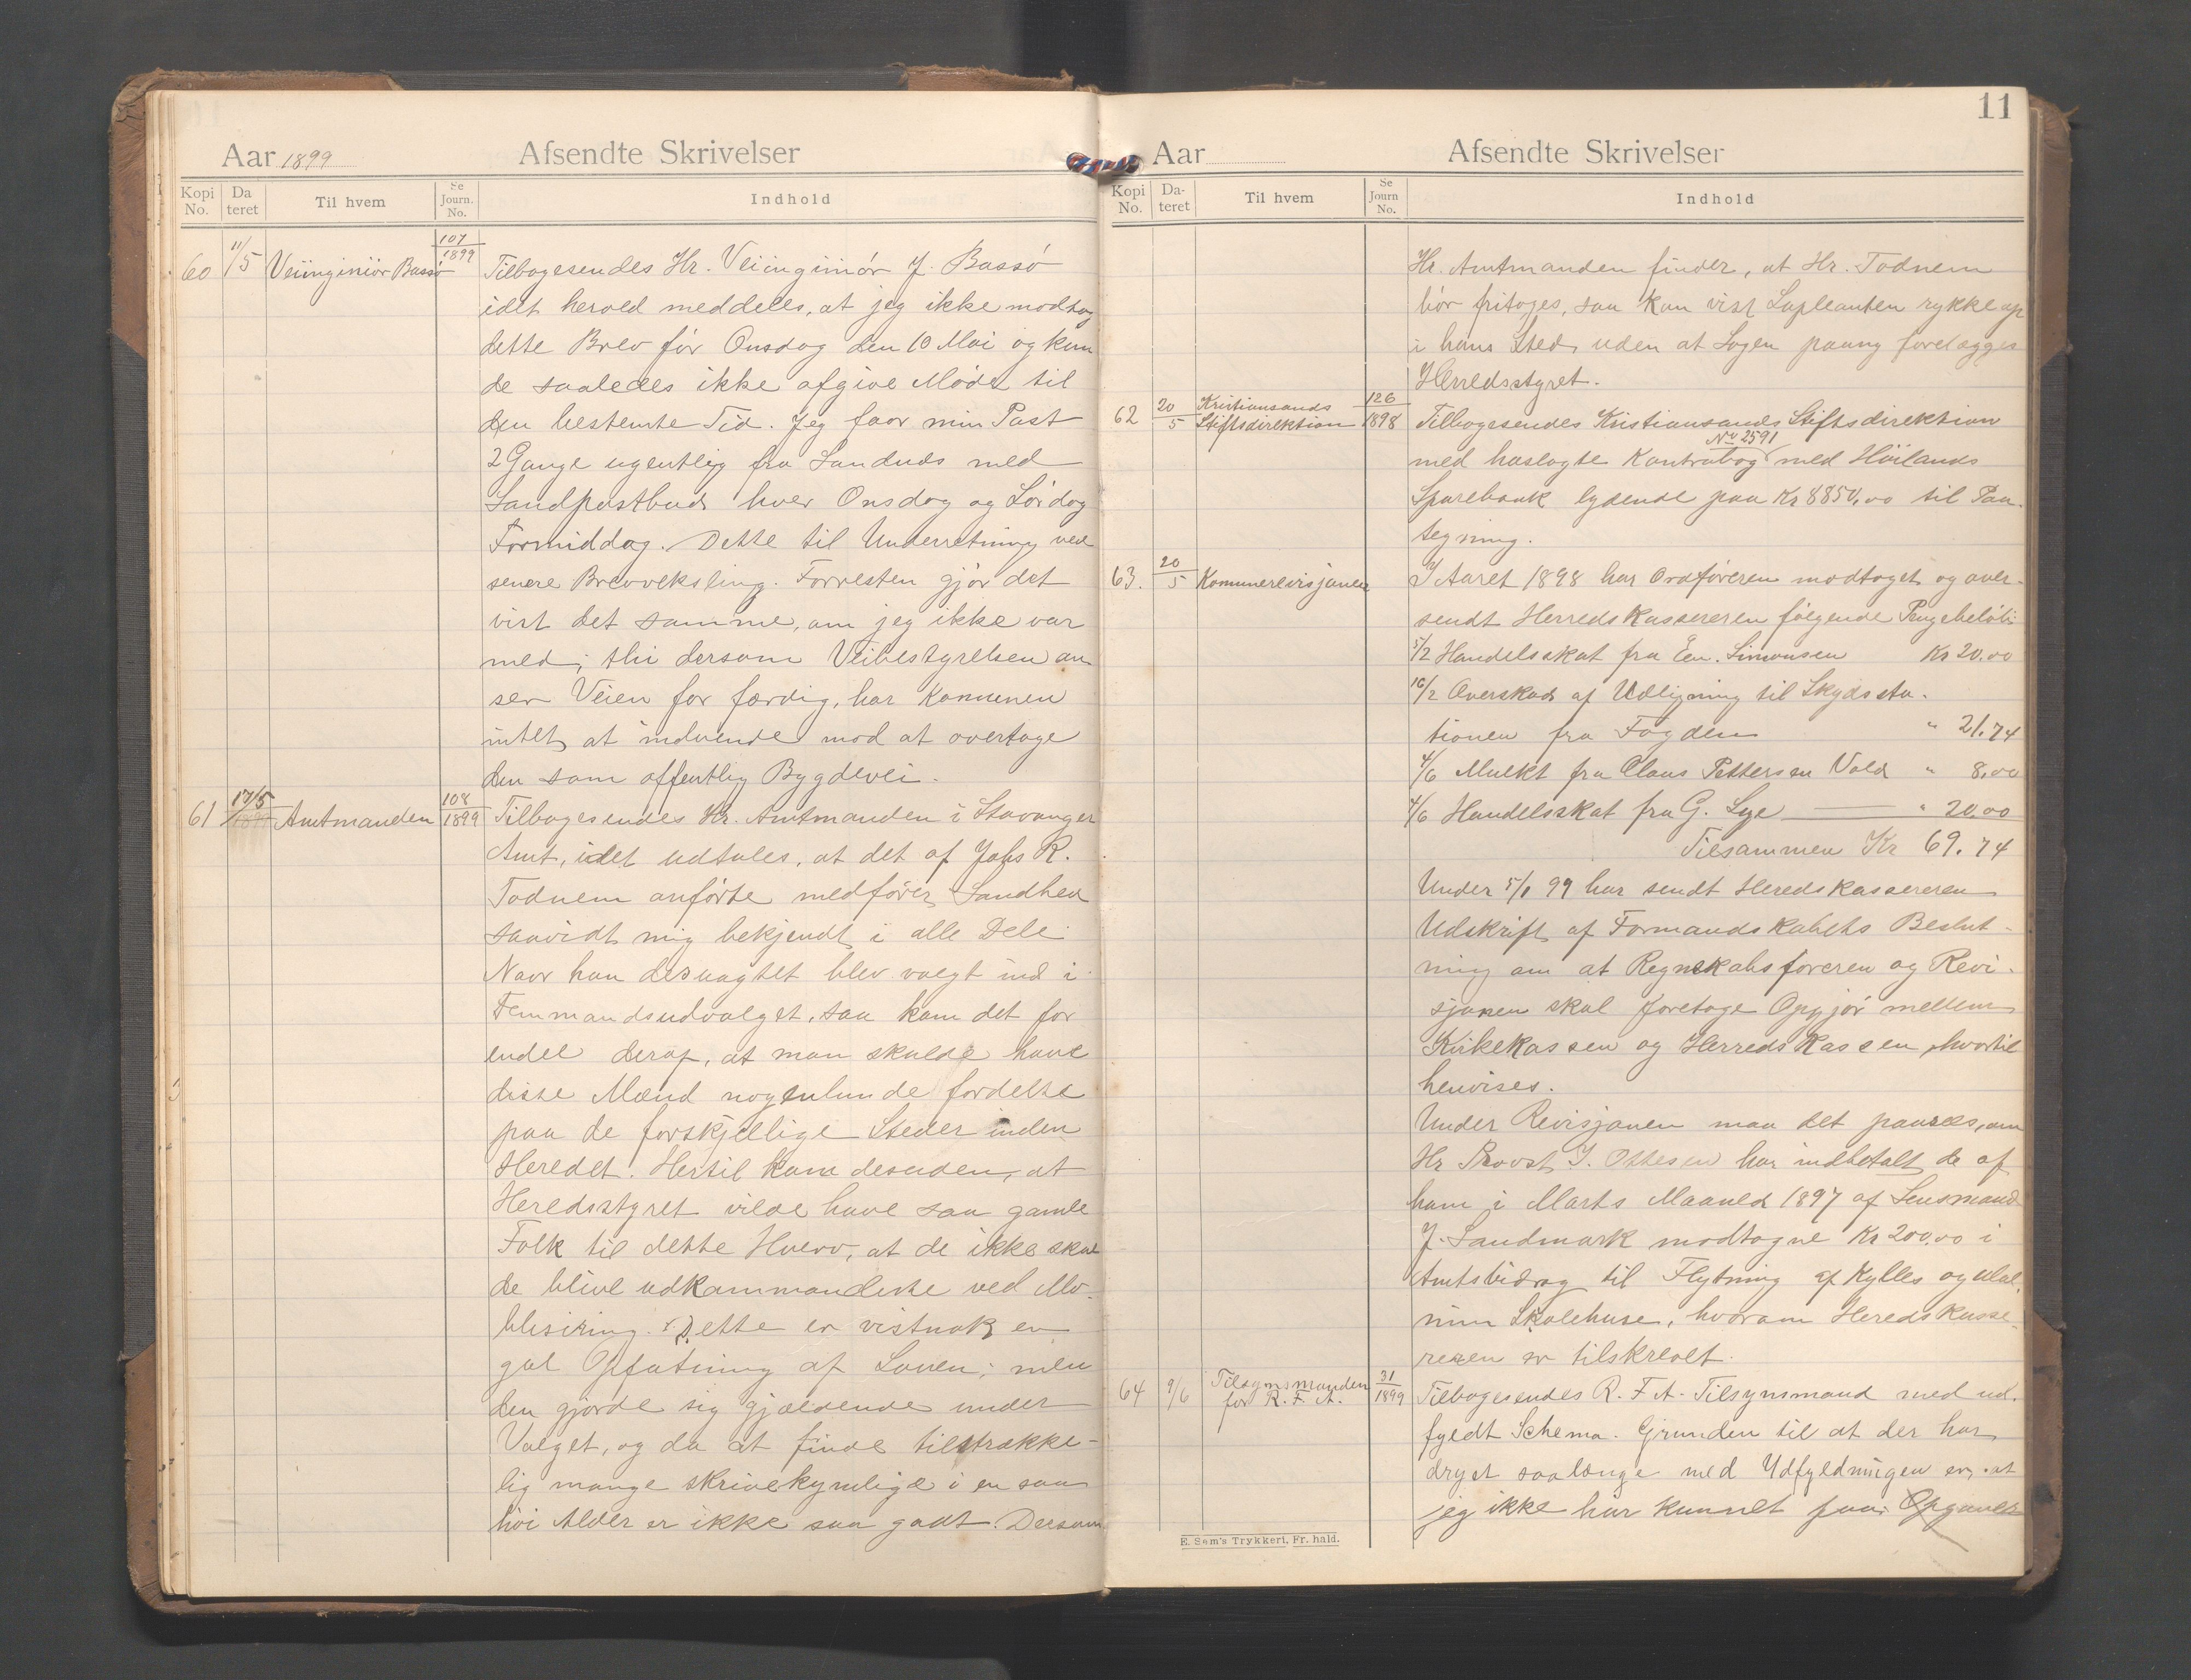 Aar 1899 Afsendte Skrivelser
Kopi No. Da teret Til hvem Se Journ. No. Indhold
60 11/5 Veiinginiör Bassö 107/1899 Tilbagesendes Hr. Veiinginiör J. Bassö
idet herved meddeles, at jeg ikke modtog
dette Brev för Onsdag den 10 Mai og kun
de saaledes ikke afgive Möde til
den bestemte Tid. Jeg faar min Post
2 Gange ugentlig fra Sandnes med
Landpostbud hver Onsdag og Lördag
Formiddag. Dette til Underretning ved
senere Brevveksling. Forresten gjör det
vist det samme, om jeg ikke var
med; thi dersom Veibestyrelsen an
ser Veien for færdig, har Komunen
intet at indvende mod at overtage
den som offentlig Bygdevei.
61 17/5 Amtmanden 108/1899 Tilbagesendes Hr. Amtmanden i Stavanger
Amt, idet udtales, at det af Johs R.
Todnem anförte medförer Sandhed
saavidt mig bekjendt i alle Dele
Naar han desuagtet blev valgt ind i
Femmandsudvalget, saa kom det for
endel deraf, at man skulde have
disse Mænd nogenlunde fordelte
paa de forskjellige Steder inden
Heredet. Hertil kom desuden, at
Heredsstyret vilde have saa gamle
Folk til dette Hverv, at de ikke skul
de blive udkommanderte ved Mo-
blisiring. Dette er vistnok en
gal Opfatning af Loven; men
den gjorde sig gjældende under
Valget, og da at finde tilstrække-
lig mange skrivekyndige i en saa
höi Alder er ikke saa godt. Dersom
11
Aar Afsendte Skrivelser
Kopi No. Da- teret Til hvem Se Journ No. Indhold
Hr. Amtmanden finder, at Hr. Todnem
bör fritages, saa kan vist Supleanten rykke op
i hans Sted uden at Sagen paany forelægges
Herredsstyret.
62 20/5 Kristiansands Stiftsdirektion 126/1898 Tilbagesendes Kristiansands Stiftsdirektion
No 2591
med haslagte Kontrabog med Höilands
Sparebank lydende paa Kr 8850,00 til Paa-
tegning.
63. 20/5 Komunerevisjonen I Aaret 1898 har Ordföreren modtaget og over-
sendt Herredskassereren fölgende Pengebelöb:
5/2 Handelsskat fra Em. Simonsen Kr 20.00
16/2 Overskud af Udligning til Skydssta-
tionen fra Fogden " 21.74
4/6 Mulkt fra Claus Pettersen Vold " 8,00
4/6 Handelsskat fra G. Lye " 20,00
Tilsammen Kr 69.74
Under 5/1 99 har sendt Heredskassereren
Udskrift af Formandskabets Beslut-
ning om at Regnskabsföreren og Revi-
sjonen skal foretage Opgjör mellem
Kirkekassen og Herredskassen, hvortil
henvises.
Under Revisjonen maa det paasees, om
Hr Provst I. Ottesen har indbetalt de af
ham i Marts Maaned 1897 af Lensmand
J. Landmark modtagne Kr 200,00 i
Amtsbidrag til Flytning af Kylles og Ulal,
min Skolehuse, hvorom Heredskasse-
reren er tilskrevet.
64 9/6 Tilsynsmanden for R. F. A. 31/1899 Tilbagesendes R. F. A. Tilsynsmand med ud-
fyldt Schema. Grunden til at der har
dryet saalænge med Udfyldningen er, at
jeg ikke har kunnet faa Opgaver
E. Sem's Trykkeri, Fr. hald.